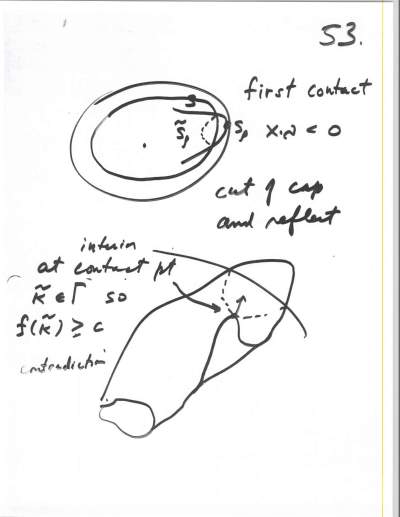 53.
first contact
S
S̃₁ S₁ x·ν < 0
cut off cap
and reflect
interior
at contact pt
κ̃ ∈ Γ so
f(κ̃) ≥ c
contradiction